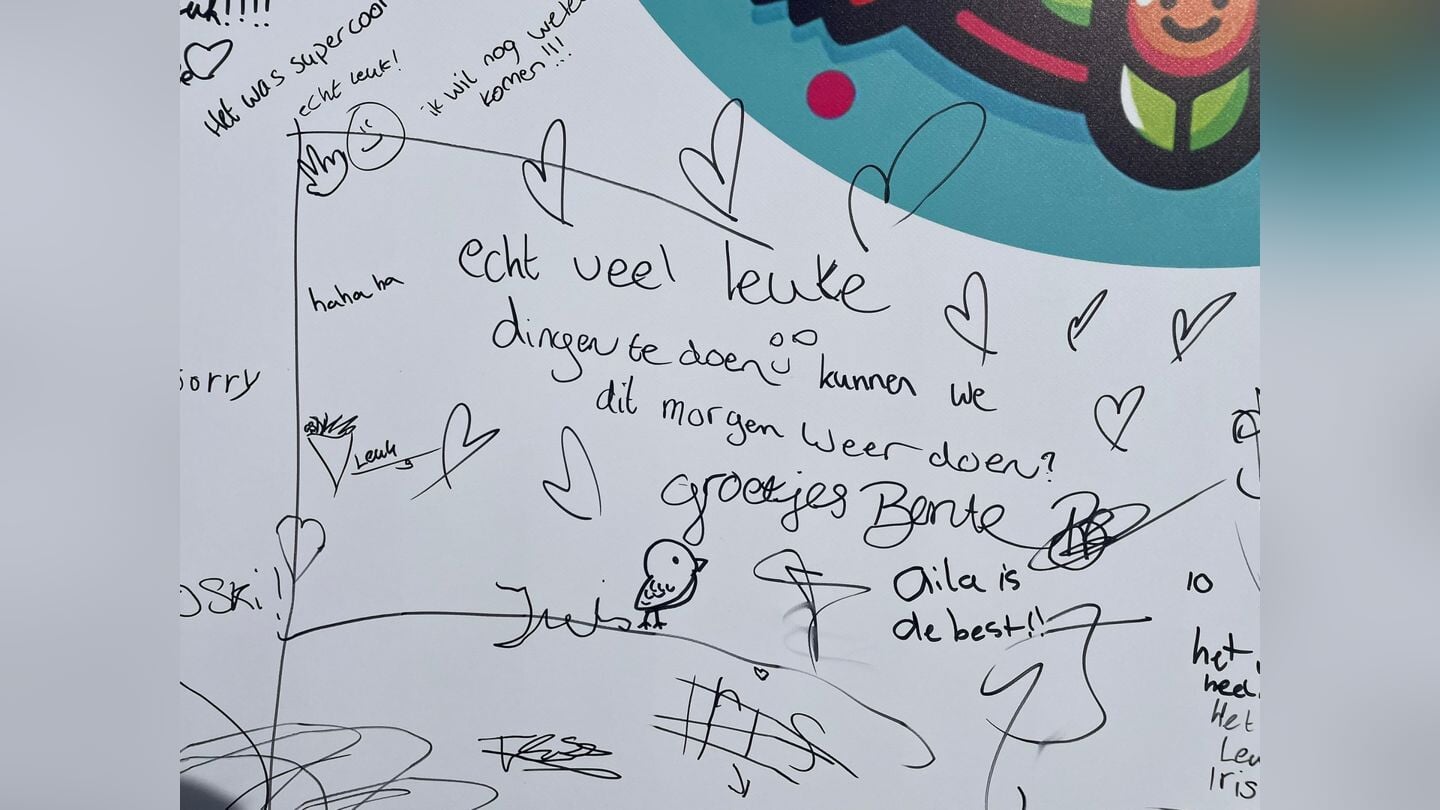 Het was supercool
echt leuk!
ik wil nog
komen!!!
hahaha
echt veel leuke
dingen te doen kunnen we
dit morgen weer doen?
groetjes Bente
sorry
Leuk
oski!
Aila is
de best!!
10
het
heel
Het
Leu
Iris